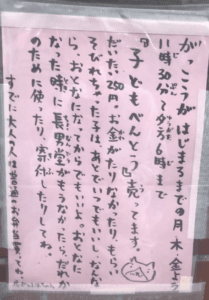 がっこうがはじまるまでの月木金よう
11時30分〜夕方6時まで
『子どもべんとう』売ってます。
だいたい250円。お金がたりなかったり、もらい
そびれちゃった子は、あとでいいし、なんな
ら、おとなになってからでもいいよ。おとなに
なった時に長男堂がもうなかったら、だれか
のために使ったり、寄付したりしてね。
すでに大人の人は普通のお弁当買ってね。